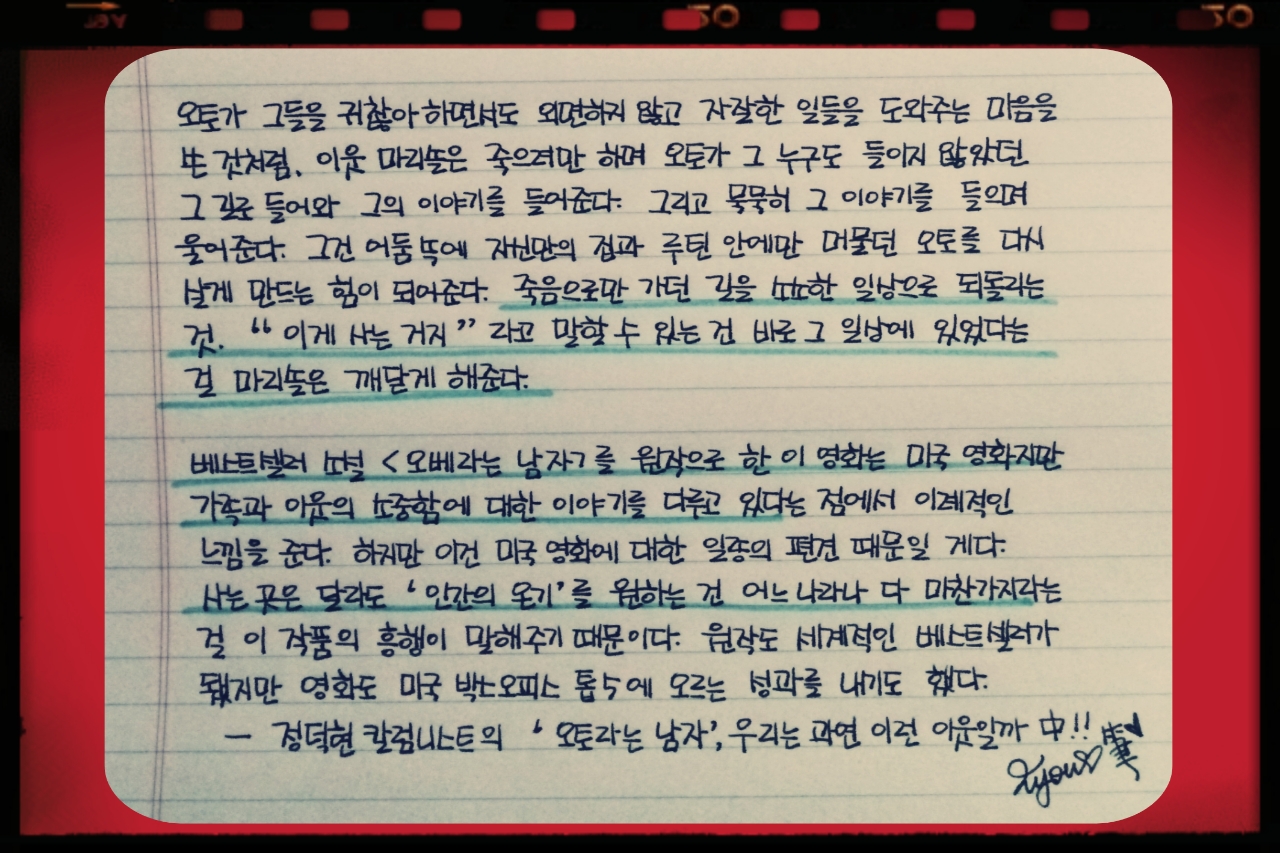 오토가 그들을 귀찮아하면서도 외면하지 않고 자잘한 일들을 도와주는 마음을
쓴 것처럼, 이웃 마리솔은 죽으려만 하며 오토가 그 누구도 들이지 않았던
그 집으로 들어와 그의 이야기를 들어준다. 그리고 묵묵히 그 이야기를 들으며
울어준다. 그건 어둠 속에 자신만의 집과 루틴 안에만 머물던 오토를 다시
살게 만드는 힘이 되어준다. 죽음으로만 가던 길을 소소한 일상으로 되돌리는
것. “이게 사는 거지” 라고 말할 수 있는 건 바로 그 일상에 있었다는
걸 마리솔은 깨닫게 해준다.
베스트셀러 소설 <오베라는 남자>를 원작으로 한 이 영화는 미국 영화지만
가족과 이웃의 소중함에 대한 이야기를 다루고 있다는 점에서 이례적인
느낌을 준다. 하지만 이건 미국 영화에 대한 일종의 편견 때문일 게다.
사는 곳은 달라도 ‘인간의 온기’를 원하는 건 어느 나라나 다 마찬가지라는
걸 이 작품의 흥행이 말해주기 때문이다. 원작도 세계적인 베스트셀러가
됐지만 영화도 미국 박스오피스 톱5에 오르는 성과를 내기도 했다.
— 정덕현 칼럼니스트의 ‘오토라는 남자’, 우리는 과연 이런 이웃일까 中!!